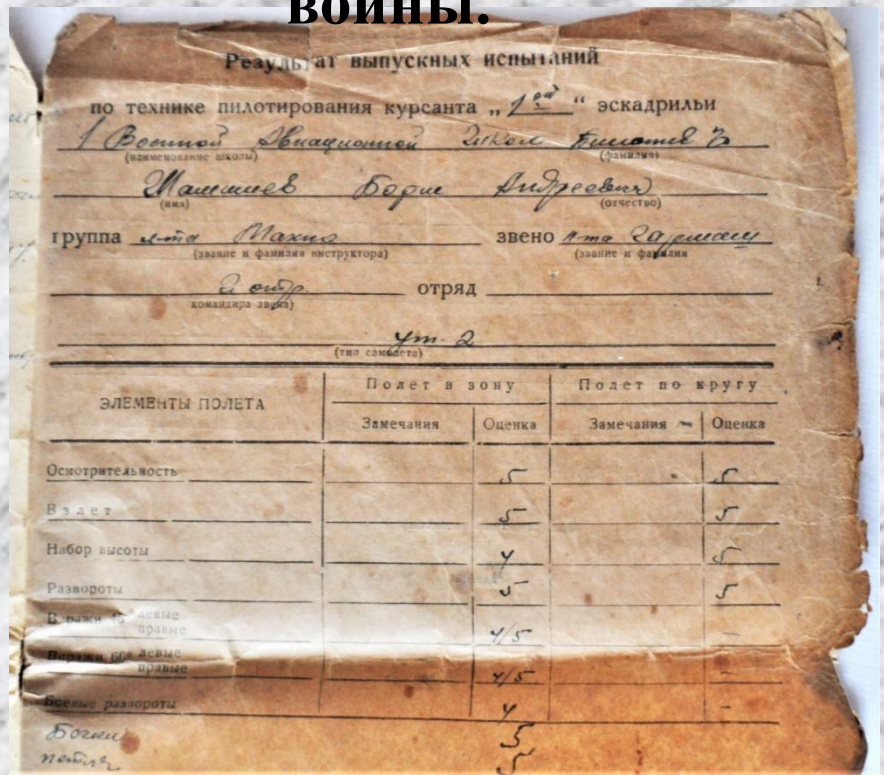 войны.
Результат выпускных испытаний
по технике пилотирования курсанта „1ой“ эскадрильи
1 Военной Авиационной Школ
(наименование школы) (фамилия)
Борис Андреевич
(имя) (отчество)
группа л-та Махно звено л-та
(звание и фамилия инструктора) (звание и фамилия
2 отр. отряд
командира звена)
ут-2
(тип самолета)
ЭЛЕМЕНТЫ ПОЛЕТА Полет в зону Полет по кругу
Замечания Оценка Замечания Оценка
Осмотрительность 5 5
Взлет 5 5
Набор высоты 4 5
Развороты 5 5
Виражи 45° левые
правые 4/5 -
Виражи 60° левые
правые 4/5 -
Боевые развороты 4 -
Бочки 5
петля 5